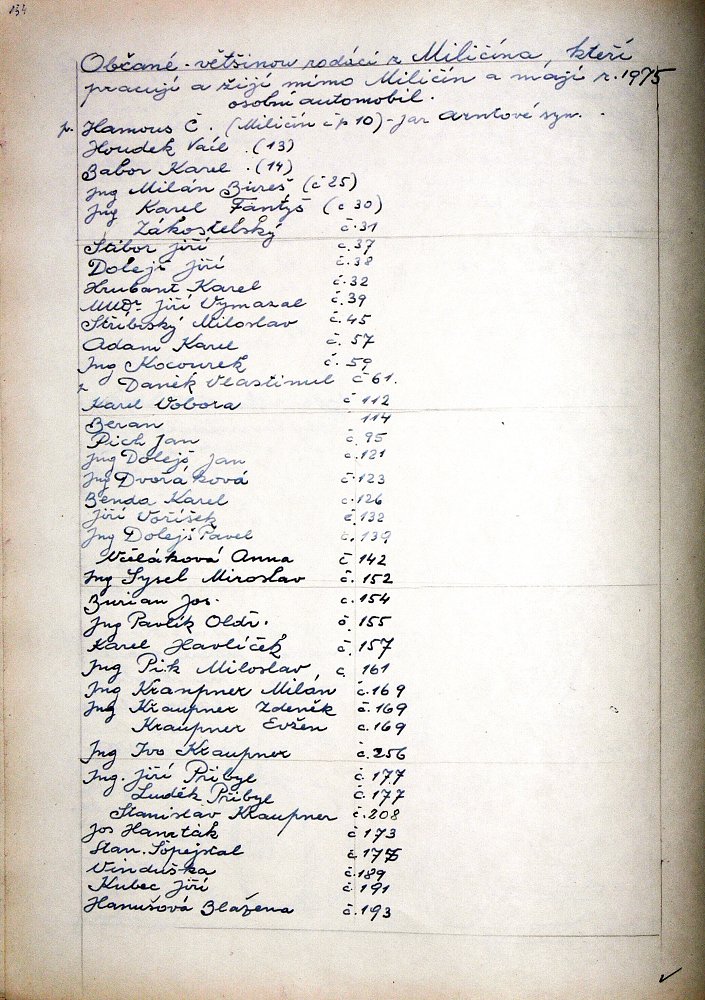 134
Občané - většinou rodáci z Miličína, kteří
pracují a žijí mimo Miličín a mají r. 1975
osobní automobil.
p. Hamous Č. (Miličín čp 10) - syn.
Houdek Václ. (13)
Babor Karel. (14)
Ing Milán Bureš (č 25)
Ing Karel Fantyš (č 30)
Zákostelský č. 31
Stibor Jiří č. 37
Dolejš Jiří č. 38
Hrubant Karel č. 32
MUDr. Jiří Vymazal č. 39
Stříbrský Miloslav č. 45
Adam Karel č. 57
Ing Kocourek č. 59
Daněk Vlastimil č 61.
Karel Vobora č 112
Beran 114
Pich Jan č. 95
Ing Dolejš Jan č. 121
Ing Dvořáková č. 123
Benda Karel č. 126
Jiří Voříšek č 132
Ing Dolejš Pavel č. 139
Včeláková Anna č 142
Ing Sysel Miroslav č. 152
Burian Jos. č. 154
Ing Pavlík Oldř. č. 155
Karel Havlíček č. 157
Ing Pik Miloslav č. 161
Ing Kraupner Milán č. 169
Ing Kraupner Zdeněk č. 169
Kraupner Evžen č. 169
Ing Ivo Kraupner č. 256
Ing. Jiří Přibyl č. 177
Luděk Přibyl č. 177
Stanislav Kraupner č. 208
Jos č 173
Stan. č.
Vinduška č. 189
Kubec Jiří č. 191
Hanušová Blažena č. 193